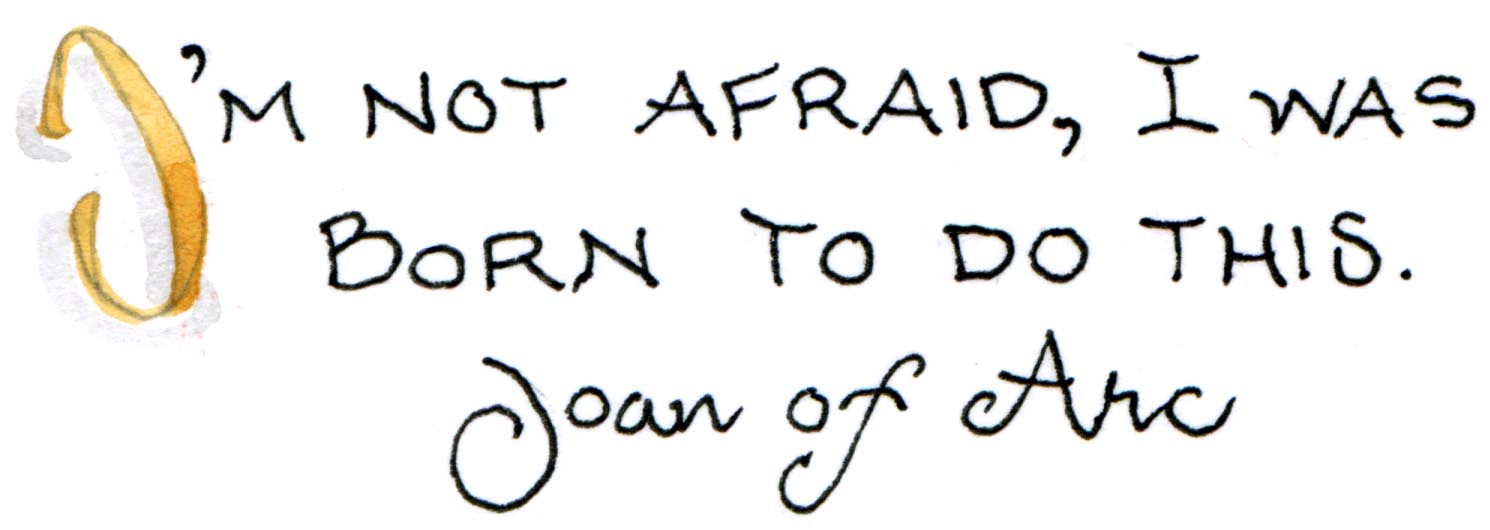 I'M NOT AFRAID, I WAS
BORN TO DO THIS.
Joan of Arc